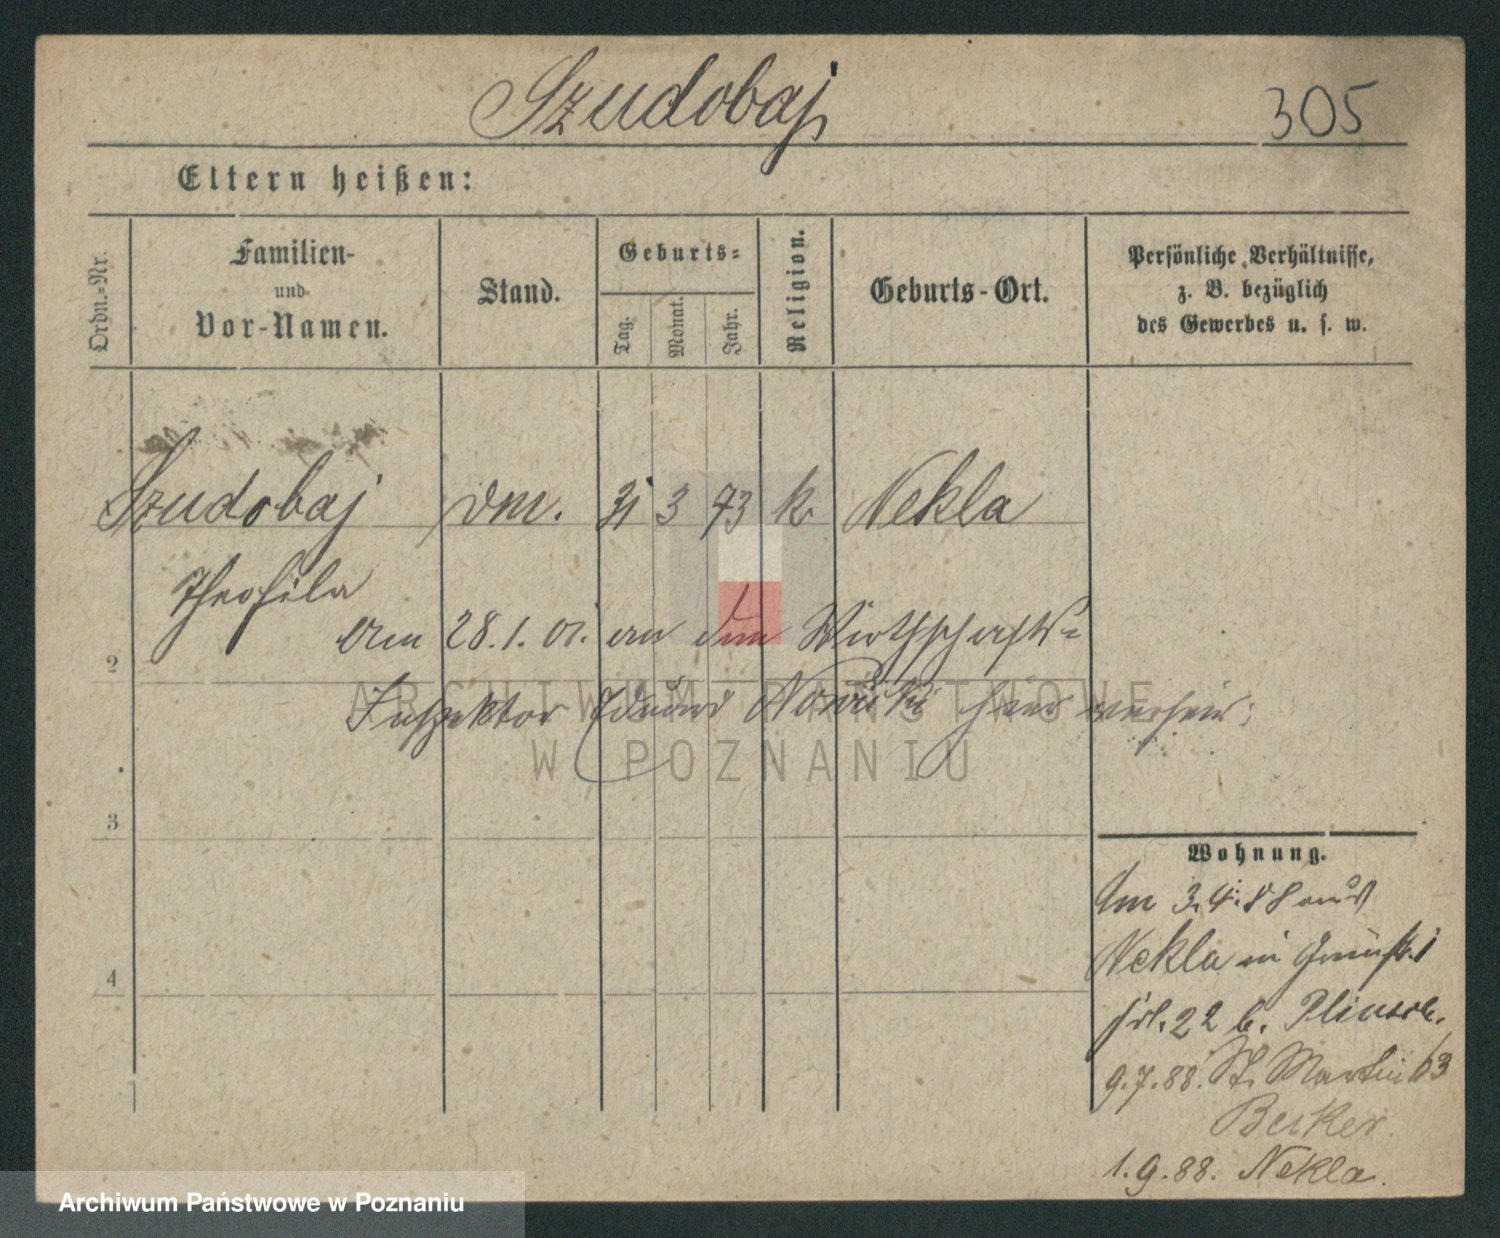 Szudobaj
305
Eltern heißen:
Ordn.-Nr.
Familien-
und
Vor-Namen.
Stand.
Geburts-
Tag.
Monat.
Jahr.
Religion.
Geburts-Ort.
Persönliche Verhältnisse,
z. B. bezüglich
des Gewerbes u. s. w.
Szudobaj dm. 31 3 73 k. Nekla
Theofila
am 28.1.01. an den Wirthschafts-
2
Inspektor Eduard Nowicki hier
ARCHIWUM PAŃSTWOWE
W POZNANIU
3
4
Wohnung.
Am 3.4.88 aus
Nekla in
22 b.
9.7.88. St. Martin 63
Becker
1.9.88. Nekla.
Archiwum Państwowe w Poznaniu